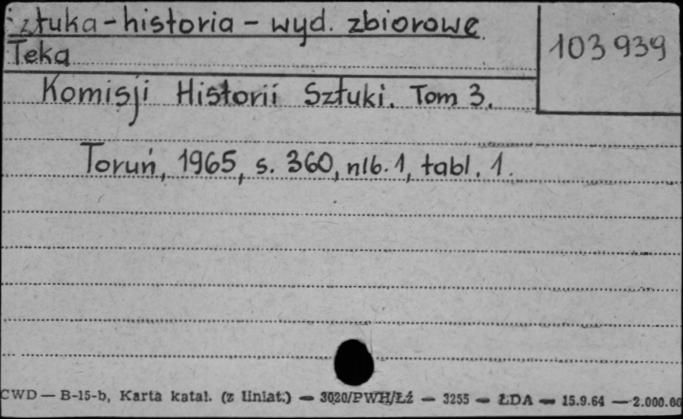 Sztuka - historia - wyd. zbiorowe
103 939
Teka
Komisji Historii Sztuki. Tom 3.
Toruń, 1965, s. 360, nlb. 1, tabl. 1.
CWD — B-15-b, Karta katal. (z liniat.) — 3020/PWH/Łź — 3255 — ŁDA — 15.9.64 — 2.000.00